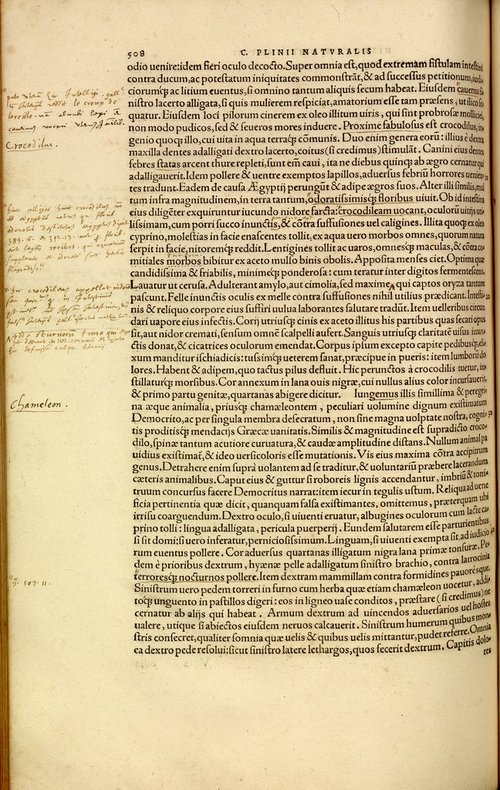 508
C. PLINII NATVRALIS
odio uenire: idem fieri oculo decocto. Super omnia est, quod extremam fistulam intestini
contra ducum, ac potestatum iniquitates commonstrāt, & ad successus petitionum, iudi-
ciorumq; ac litium euentus, si omnino tantum aliquis secum habeat. Eiusdem cauerna si-
nistro lacerto alligata, si quis mulierem respiciat, amatorium esse tam præsens, ut ilico se-
quatur. Eiusdem loci pilorum cinerem ex oleo illitum uiris, qui sint probrosæ mollicici,
non modo pudicos, sed & seueros mores induere. Proxime fabulosus est crocodilus, in-
genio quoq; illo, cui uita in aqua terraq; cōmunis. Duo enim genera eorū: illius è dextra
maxilla dentes adalligati dextro lacerto, coitus (si credimus) stimulāt. Canini eius dentes
febres statas arcent thure repleti, sunt em̄ caui, ita ne diebus quinq; ab ægro cernatur qui
adalligauerit. Idem pollere & uentre exemptos lapillos, aduersus febriū horrores uenien-
tes tradunt. Eadem de causa Ægyptij perungūt & adipe ægros suos. Alter illi similis, mul-
tum infra magnitudinem, in terra tantum, odoratissimisq; floribus uiuit. Ob id intestina
eius diligēter exquiruntur iucundo nidore farcta: crocodileam uocant, oculorū uitijs uti-
lissimam, cum porri succo inunctis, & cōtra suffusiones uel caligines. Illita quoq; ex oleo
cyprino, molestias in facie enascentes tollit, ex aqua uero morbos omnes, quorum natura
serpit in facie, nitoremq; reddit. Lentigines tollit ac uaros, omnesq; maculas, & cōtra co-
mitiales morbos bibitur ex aceto mullo binis obolis. Apposita menses ciet. Optima quæ
candidissima & friabilis, minimeq; ponderosa: cum teratur inter digitos fermentescens.
Lauatur ut cerusa. Adulterant amylo, aut cimolia, sed maxime, qui captos oryza tantum
pascunt. Felle inunctis oculis ex melle contra suffusiones nihil utilius prædicant. Intesti-
nis & reliquo corpore eius suffiri uulua laborantes salutare tradūt. Item uelleribus circun-
dari uapore eius infectis. Corij utriusq; cinis ex aceto illitus his partibus quas secari opus
sit, aut nidor cremati, sensum omnē scalpelli aufert. Sanguis utriusq; claritatē uisus inun-
ctis donat, & cicatrices oculorum emendat. Corpus ipsum excepto capite pedibusq;, eli-
xum manditur ischiadicis: tussimq; ueterem sanat, præcipue in pueris: item lumborū do-
lores. Habent & adipem, quo tactus pilus defluit. Hic perunctos à crocodilis tuetur, in-
stillaturq; morsibus. Cor annexum in lana ouis nigræ, cui nullus alius color incursauerit,
& primo partu genitæ, quartanas abigere dicitur. Iungemus illis simillima & peregri-
na æque animalia, priusq; chamæleontem, peculiari uolumine dignum existimatum
Democrito, ac per singula membra desecratum, non sine magna uolptate nostra, cogni-
tis proditisq; mendacijs Græcæ uanitatis. Similis & magnitudine est supradicto croco-
dilo, spinæ tantum acutiore curuatura, & caudæ amplitudine distans. Nullum animal pa-
uidius existimāt, & ideo uersicoloris esse mutationis. Vis eius maxima cōtra accipitrum
genus. Detrahere enim suprà uolantem ad se traditur, & uoluntariū præbere lacerandum
cæteris animalibus. Caput eius & guttur si roboreis lignis accendantur, imbriū & toni-
truum concursus facere Democritus narrat: item iecur in tegulis ustum. Reliqua ad uene
ficia pertinentia quæ dicit, quanquam falsa existimantes, omittemus, præterquam ubi
irrisu coarguendum. Dextro oculo, si uiuenti eruatur, albugines oculorum cum lacte ca-
prino tolli: lingua adalligata, pericula puerperij. Eundem salutarem esse parturientibus
si sit domi: si uero inferatur, perniciosissimum. Linguam, si uiuenti exempta sit, ad iudicio-
rum euentus pollere. Cor aduersus quartanas illigatum nigra lana primæ tonsuræ. Pe-
dem è prioribus dextrum, hyænæ pelle adalligatum sinistro brachio, contra latrocinia
terroresq; nocturnos pollere. Item dextram mammillam contra formidines pauoresque.
Sinistrum uero pedem torreri in furno cum herba quæ etiam chamæleon uocetur, addi-
toq; unguento in pastillos digeri: eos in ligneo uase conditos, præstare (si credimus) ne
cernatur ab alijs qui habeat. Armum dextrum ad uincendos aduersarios uel hostes
ualere, utique si abiectos eiusdem neruos calcauerit. Sinistrum humerum quibus mon-
stris consecret, qualiter somnia quæ uelis & quibus uelis mittantur, pudet referre. Omnia
ea dextro pede resolui: sicut sinistro latere lethargos, quos fecerit dextrum. Capitis dolo-
res
Crocodilus.
Chameleon.